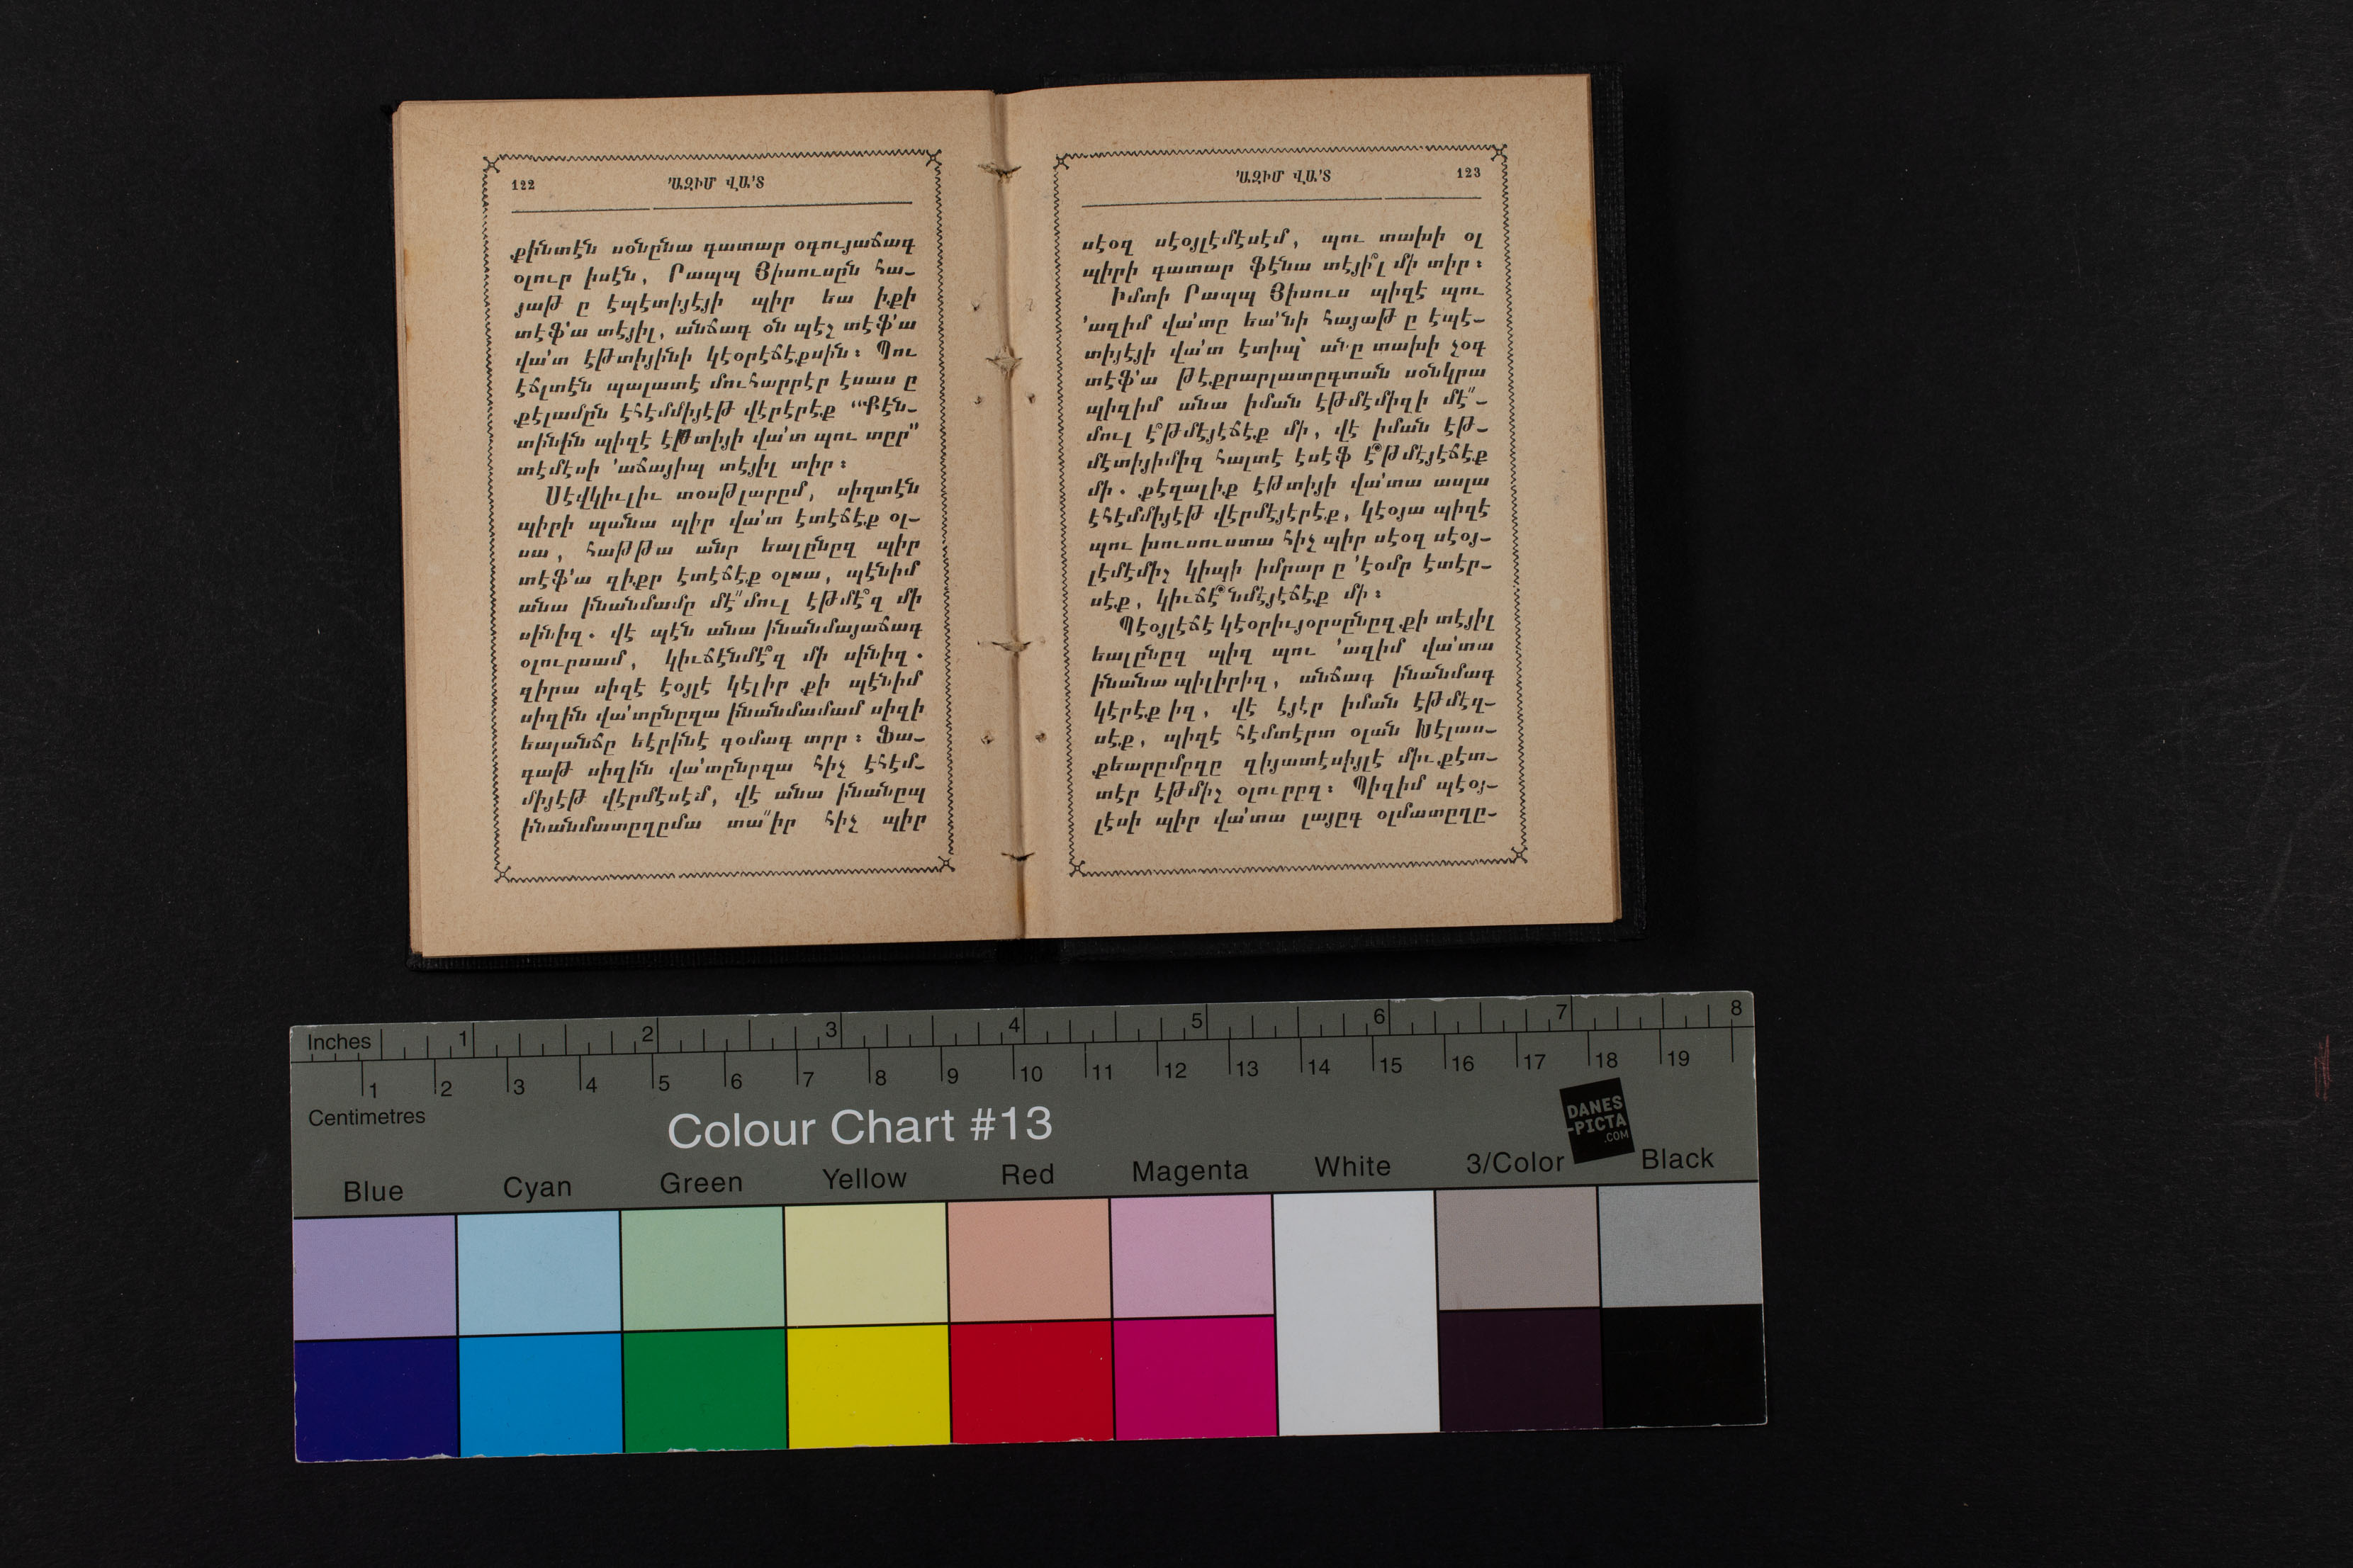 122
'ԱԶԻՄ ՎԱ'Տ
քինտէն սօնընա գատար օգույաճագ
օլուր իսէն, Րապպ Յիսուսըն հա-
յաթ ը էպէտիյէյի պիր եա իքի
տէֆ'ա տէյիլ, անճագ օն պէչ տէֆ'ա
վա'տ էթտիյինի կէօրէճէքսին։ Պու
էճլտէն պալատէ մուհարրէր էսաս ը
քէլամըն էհէմմիյէթ վէրէրէք “Քէն-
տինին պիզէ էթտիյի վա'տ պու տըր”
տէմէսի 'աճայիպ տէյիլ տիր։
Սէվկիւլիւ տօսթլարըմ, սիզտէն
պիրի պանա պիր վա'տ էտէճէք օլ-
սա, հաթթա անը եալընըզ պիր
տէֆ'ա զիքր էտէճէք օլսա, պէնիմ
անա ինանմամը մէ՛՛մուլ էթմէ՞զ մի
սինիզ. վէ պէն անա ինանմայաճագ
օլուրսամ, կիւճէնմէ՞զ մի սինիզ.
զիրա սիզէ էօյլէ կէլիր քի պէնիմ
սիզին վա'տընըզա ինանմամամ սիզի
եալանճը եէրինէ գօմագ տըր։ Ֆա-
գաթ սիզին վա'տընըզա հիչ էհէմ-
միյէթ վէրմէսէմ, վէ անա ինանըպ
ինանմատըղըմա տա՛՛իր հիչ պիր
'ԱԶԻՄ ՎԱ'Տ
123
սէօզ սէօյլէմէսէմ, պու տախի օլ
պիրի գատար ֆէնա տէյի՞լ մի տիր։
Իմտի Րապպ Յիսուս պիզէ պու
'ազիմ վա'տը եա'նի հայաթ ը էպէ-
տիյէյի վա'տ էտիպ՝ անը տախի չօգ
տէֆ'ա թէքրարլատըգտան սօնկրա
պիզիմ անա իման էթմէմիզի մէ՛՛-
մուլ է՞թմէյէճէք մի, վէ իման էթ-
մէտիյիմիզ հալտէ էսէֆ է՞թմէյէճէք
մի. քէզալիք էթտիյի վա'տա ասլա
էհէմմիյէթ վէրմէյէրէք, կէօյա պիզէ
պու խուսուստա հիչ պիր սէօզ սէօյ-
լէմէմիչ կիպի իմրար ը 'էօմր էտէր-
սէք, կիւճէ՞նմէյէճէք մի։
Պէօյլէճէ կէօրիւյօրսընըզ քի տէյիլ
եալընըզ պիզ պու 'ազիմ վա'տա
ինանա պիլիրիզ, անճագ ինանմագ
կէրէք իզ, վէ էյէր իման էթմէզ-
սէք, պիզէ հէմտէրտ օլան Խէլաս-
քեարըմըզը զիյատէսիյլէ միւքէտ-
տէր էթմիչ օլուրըզ։ Պիզիմ պէօյ-
լէսի պիր վա'տա լայըգ օլմատըղը-
Inches 1 2 3 4 5 6 7 8
1 2 3 4 5 6 7 8 9 10 11 12 13 14 15 16 17 18 19
Centimetres
Colour Chart #13
DANES
-PICTA
.COM
Blue Cyan Green Yellow Red Magenta White 3/Color Black